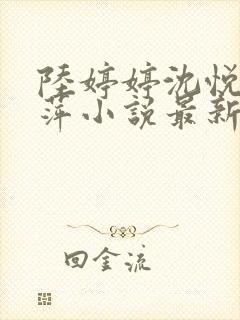 陸婷婷沈悅
萍小說最新
回金流